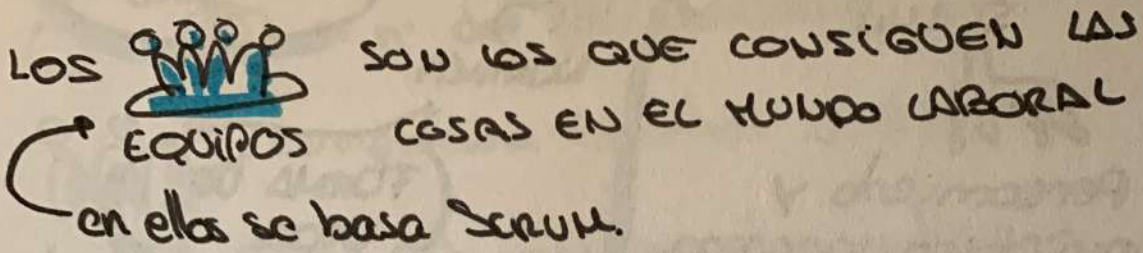 LOS EQUIPOS SON LOS QUE CONSIGUEN LAS
COSAS EN EL MUNDO LABORAL
en ellos se basa SCRUM.